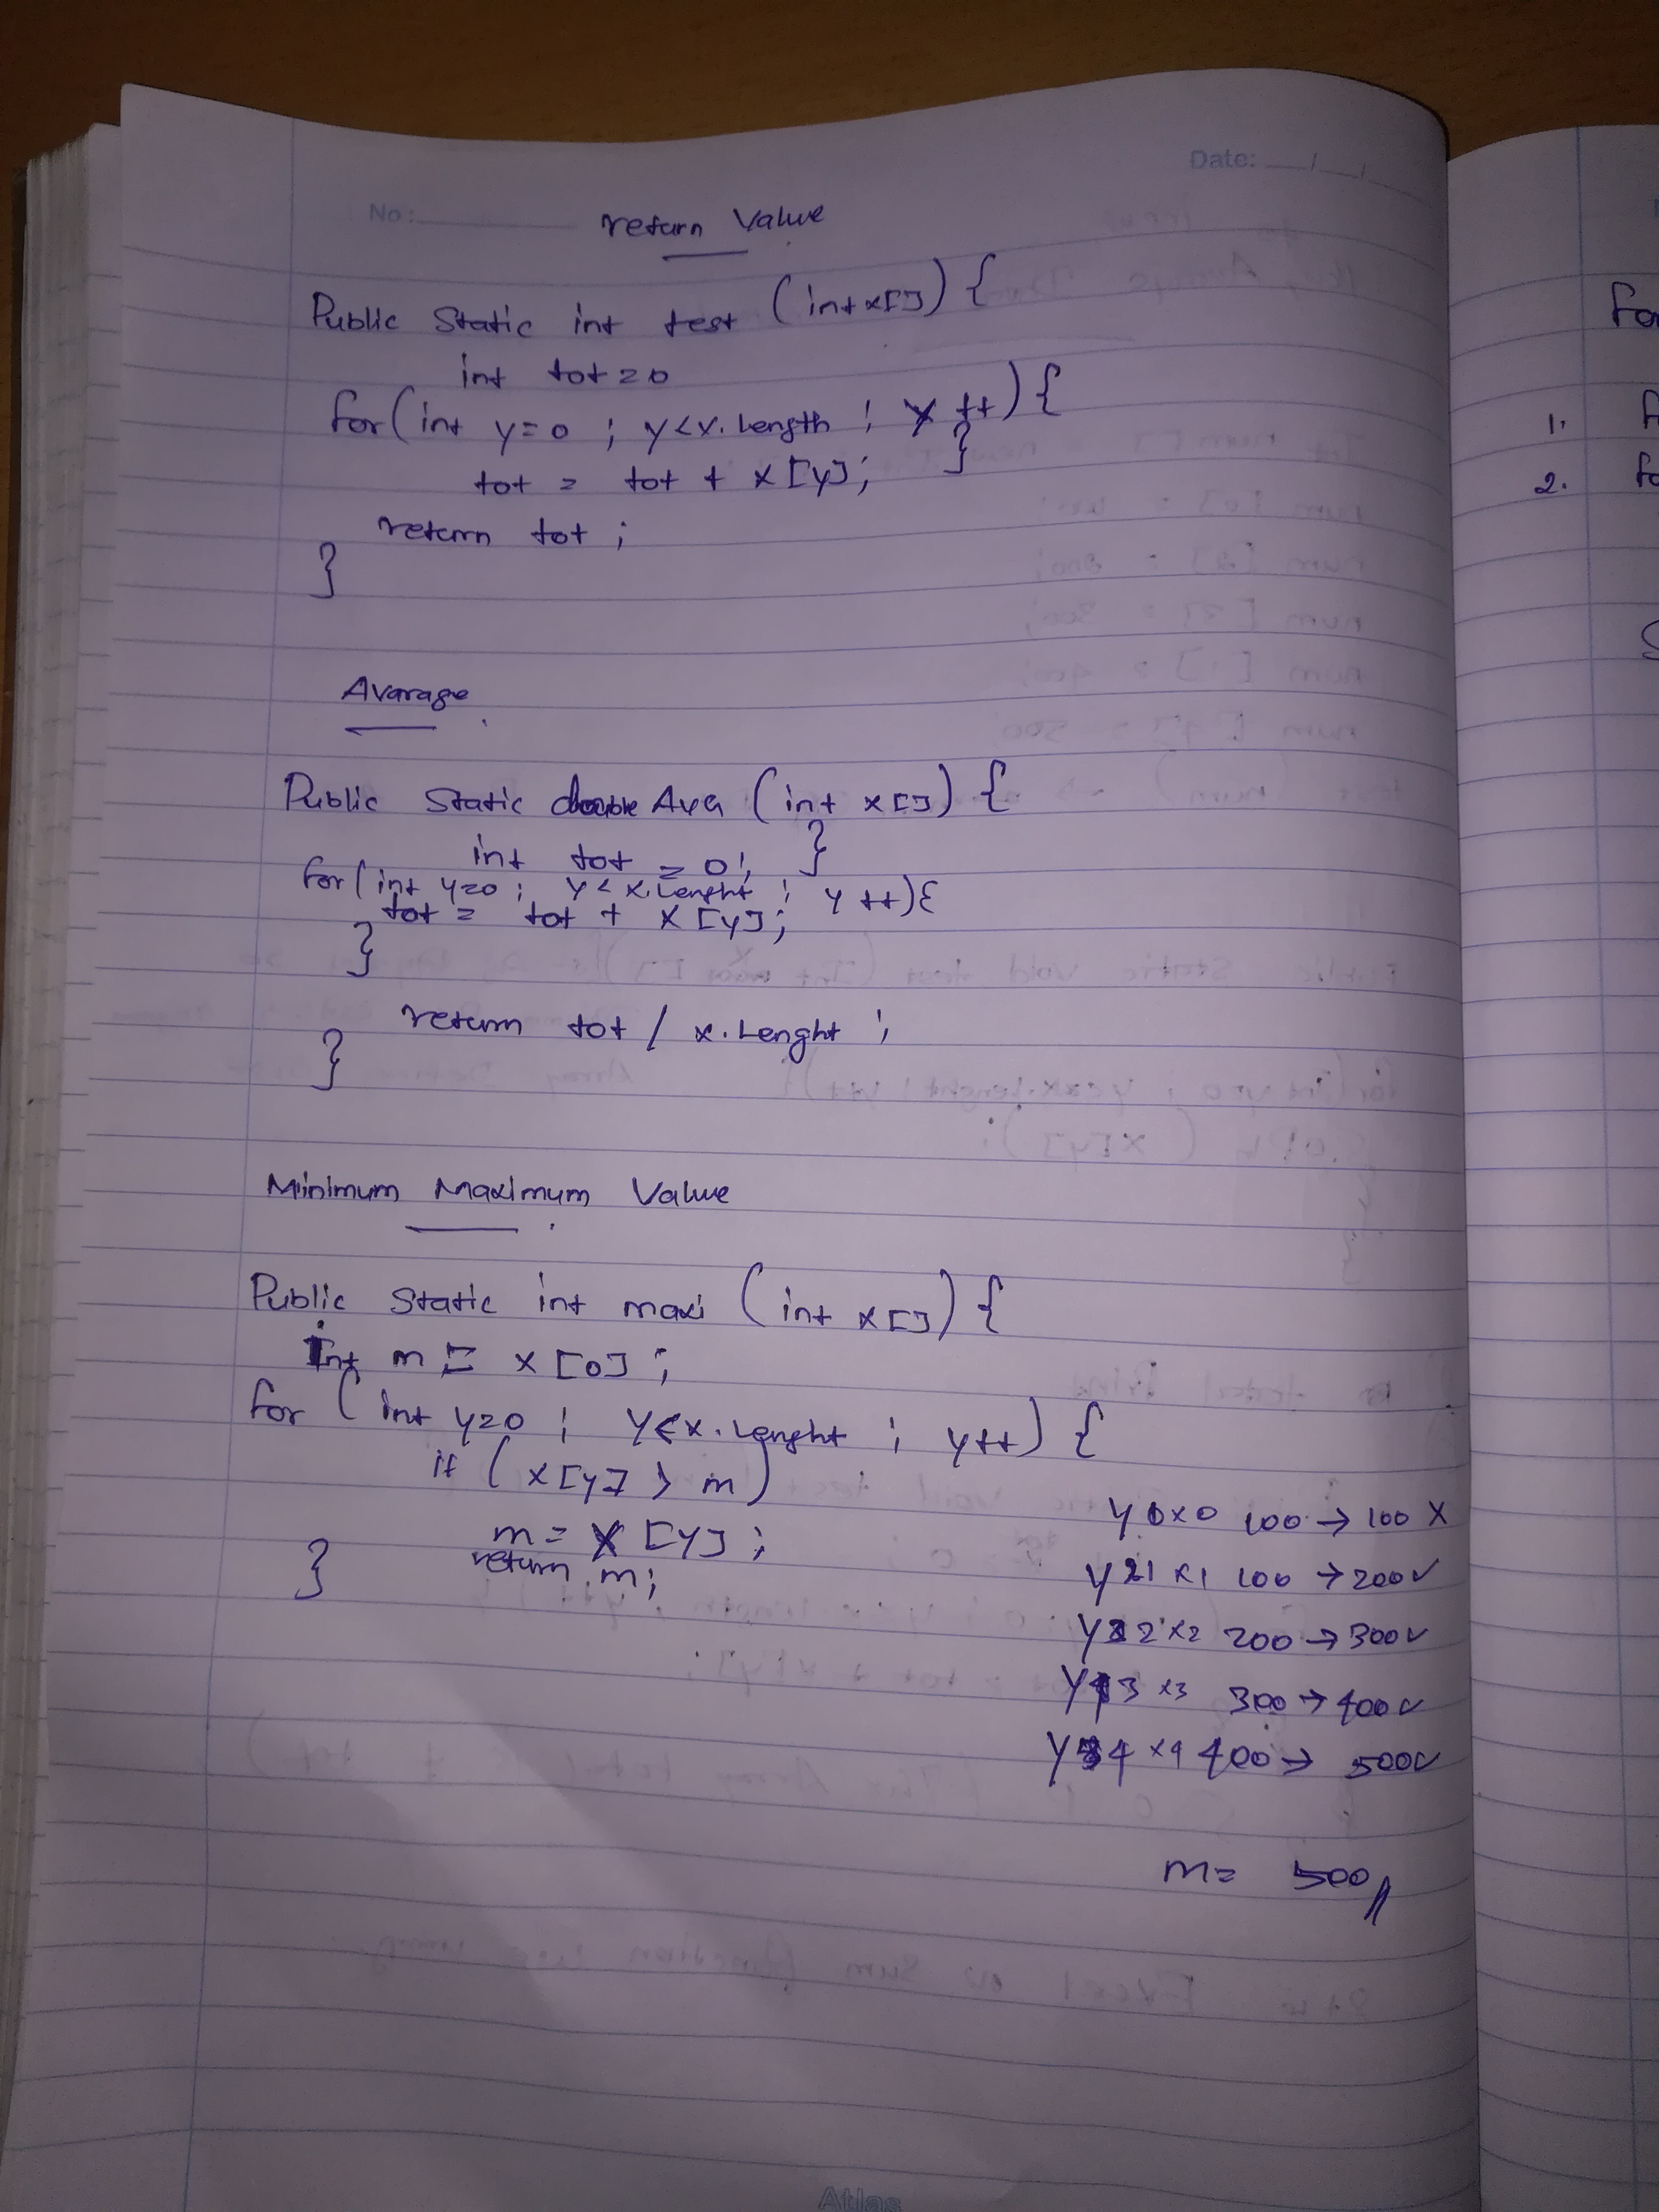 Date: __/__/
No:
return Value
Public Static int test (int x[]) {
int tot = 0
for (int y = 0 ; y < x.Length ; y ++) {
tot = tot + x [y] ; }
return tot ;
}
Avarage
Public Static double Avg (int x []) {
int tot = 0 ; }
for (int y=0 ; y < x.Lenght ; y ++) {
tot = tot + x [y] ;
}
return tot / x.Lenght ;
}
Minimum Maximum Value
Public Static int maxi (int x []) {
int m = x [0] ;
for ( int y=0 ; y < x.Lenght ; y++) {
if ( x [y] > m )
m = x [y] ;
return m ;
}
y 0 x 0 100 → 100 X
y 1 x 1 100 → 200 ✓
y 2 x 2 200 → 300 ✓
y 3 x 3 300 → 400 ✓
y 4 x 4 400 → 500 ✓
m = 500 //
1.
2.
Atlas